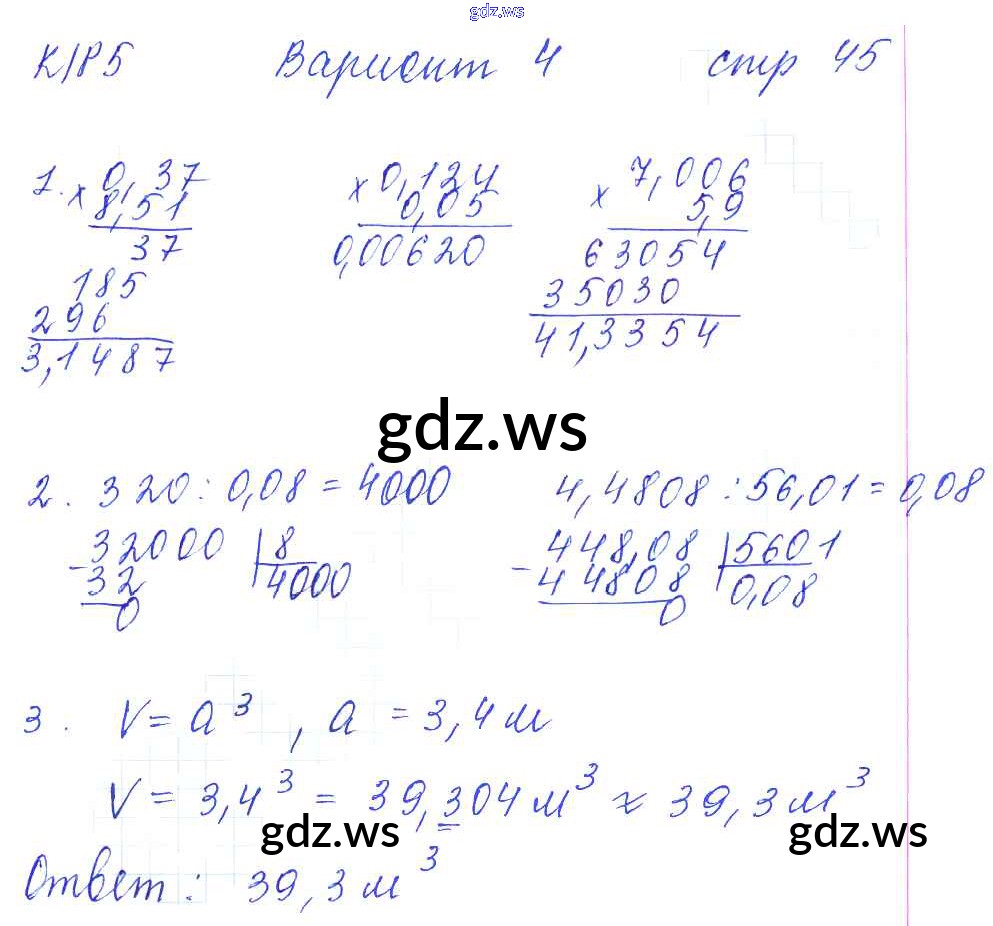 gdz.ws
К/Р 5 Вариант 4 стр 45
1. × 0,37 × 0,124 × 7,006
8,51 0,05 5,9
37 0,00620 63054
185 35030
296 41,3354
3,1487
gdz.ws
2. 320 : 0,08 = 4000 4,4808 : 56,01 = 0,08
- 32000 | 8 - 448,08 | 5601
32 4000 44808 0,08
0 0
3. V = a³, a = 3,4 м
V = 3,4³ = 39,304 м³ ≈ 39,3 м³
gdz.ws gdz.ws
Ответ: 39,3 м³